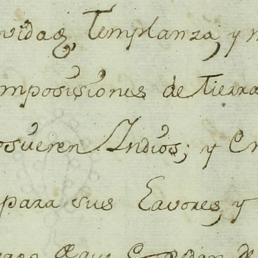 vidas, Templanza, y m
mposisiones de tierra
osueren Indios; y en
para sus Lavores, y